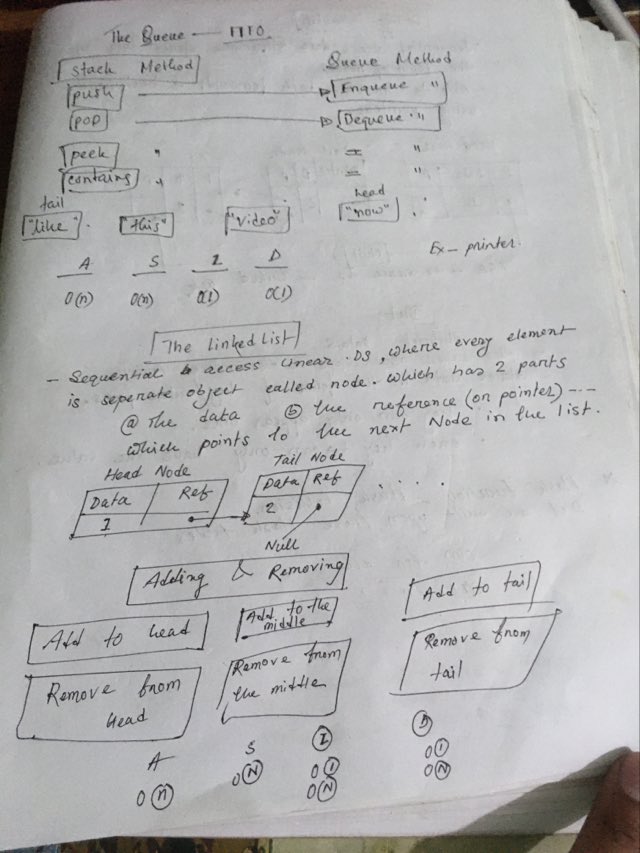 The Queue — FIFO
Stack Method Queue Method
push Enqueue "
pop Dequeue "
peek " = "
contains " = "
tail head
"like" "this" "video" "now"
Ex- printer.
A S I D
O(n) O(n) O(1) O(1)
The linked list
- Sequential access linear DS, where every element
is seperate object called node. which has 2 parts
ⓐ The data ⓑ the reference (or pointer) ---
which points to the next Node in the list.
Head Node Tail Node
Data Ref Data Ref . . . .
1 2
Null
Adding & Removing
Add to head Add to the middle Add to tail
Remove from head Remove from the middle Remove from tail
A S I D
O(n) O(N) O(1) O(1)
O(N) O(N)